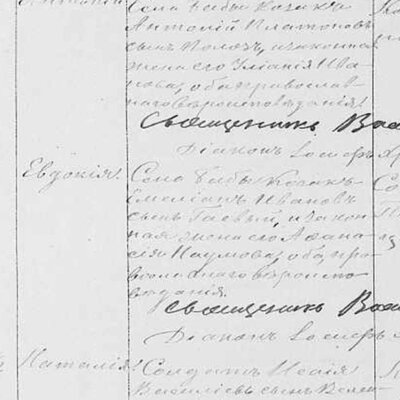 Села Бабы Козакъ
Антоній Платоновъ
сынъ и законная
жена его Іуліанія Ива
нова, оба православ
наго вѣроисповѣданія.
Священникъ
Діаконъ Іосифъ
Евдокія. Села Бабы Козакъ
Емеліанъ Ивановъ
сынъ Гаевый, и закон
ная жена его Афана
сія Наумова, оба пра
вославнаго вѣроиспо
вѣданія.
Священникъ
Діаконъ Іосифъ
Наталія. Солдатъ Исаія
Васильевъ сынъ